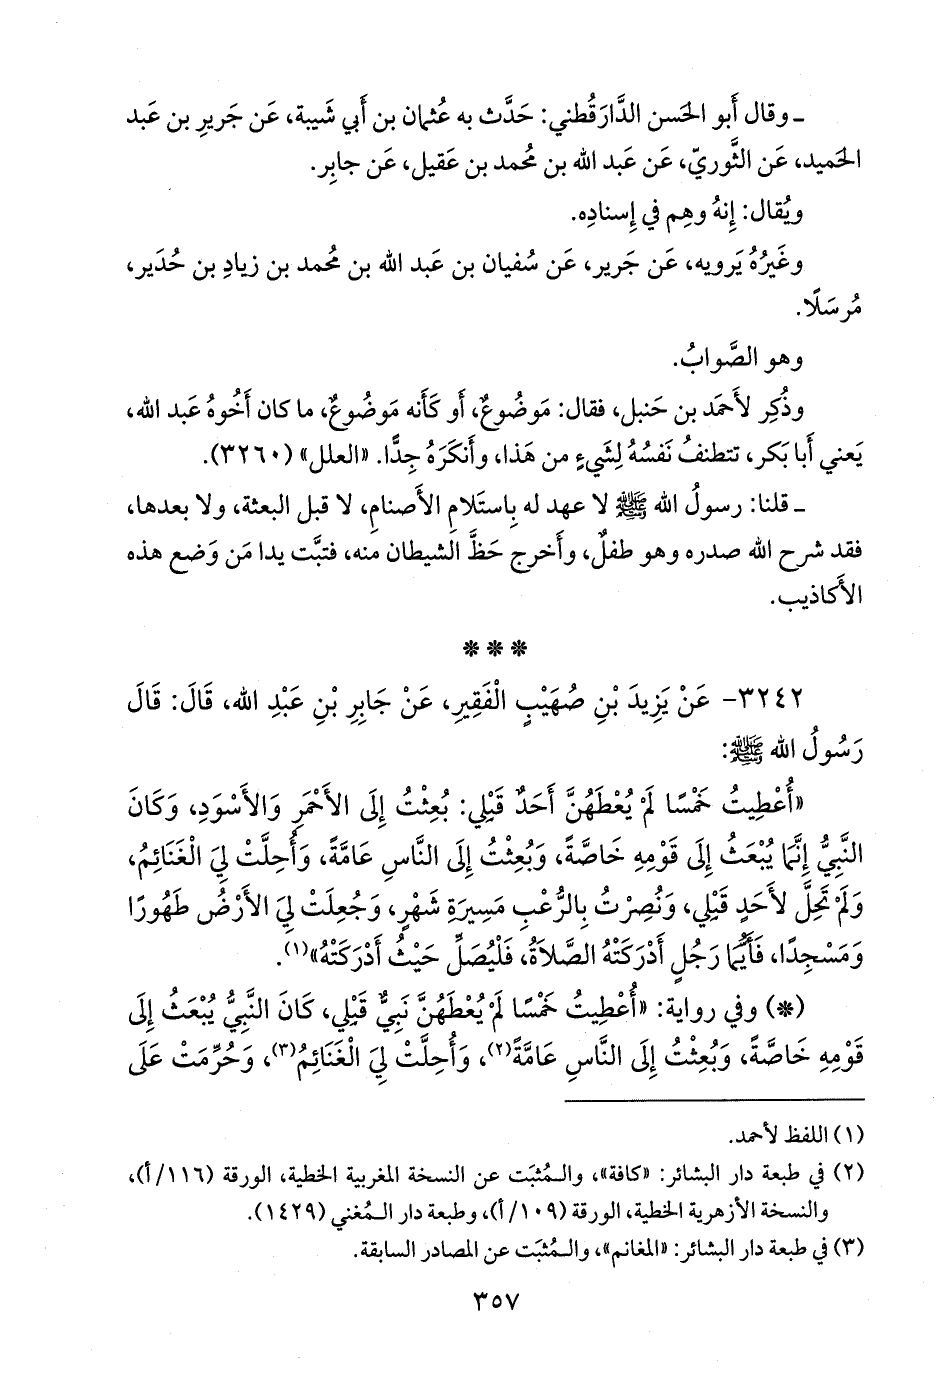 ـ وقال أَبو الحَسن الدَّارَقُطني: حَدَّث به عُثمان بن أَبي شَيبة، عَن جَريرِ بن عَبد
الحَميد، عَن الثَّوريّ، عَن عَبد الله بن مُحمد بن عَقيل، عَن جابِر.
ويُقال: إِنهُ وهِم في إِسنادِه.
وغَيرُهُ يَرويه، عَن جَرير، عَن سُفيان بن عَبد الله بن مُحمد بن زيادِ بن حُدَير،
مُرسَلًا.
وهو الصَّوابُ.
وذُكِر لأَحمَد بن حَنبل، فقال: مَوضُوعٌ، أَو كَأَنه مَوضُوعٌ، ما كان أَخُوهُ عَبد الله،
يَعني أَبا بَكر، تتطنفُ نَفسُهُ لِشَيءٍ من هَذا، وأَنكَرَهُ جِدًّا. «العلل» (٣٢٦٠).
ـ قلنا: رسولُ الله ﷺ لا عهد له بِاستَلامِ الأَصنامِ، لا قبل البعثة، ولا بعدها،
فقد شرح الله صدره وهو طفلٌ، وأَخرج حَظَّ الشيطان منه، فتبَّت يدا مَن وَضع هذه
الأَكاذيب.
* * *
٣٢٤٢- عَنْ يَزِيدَ بْنِ صُهَيْبٍ الْفَقِيرِ، عَنْ جَابِرِ بْنِ عَبْدِ الله، قَالَ: قَالَ
رَسُولُ الله ﷺ:
«أُعْطِيتُ خَمْسًا لَمْ يُعْطَهُنَّ أَحَدٌ قَبْلِي: بُعِثْتُ إِلَى الأَحْمَرِ وَالأَسْوَدِ، وَكَانَ
النَّبِيُّ إِنَّمَا يُبْعَثُ إِلَى قَوْمِهِ خَاصَّةً، وَبُعِثْتُ إِلَى النَّاسِ عَامَّةً، وَأُحِلَّتْ لِيَ الْغَنَائِمُ،
وَلَمْ تَحِلَّ لأَحَدٍ قَبْلِي، وَنُصِرْتُ بِالرُّعْبِ مَسِيرَةَ شَهْرٍ، وَجُعِلَتْ لِيَ الأَرْضُ طَهُورًا
وَمَسْجِدًا، فَأَيُّمَا رَجُلٍ أَدْرَكَتْهُ الصَّلاَةُ، فَلْيُصَلِّ حَيْثُ أَدْرَكَتْهُ»(١).
(*) وفي رواية: «أُعْطِيتُ خَمْسًا لَمْ يُعْطَهُنَّ نَبِيٌّ قَبْلِي، كَانَ النَّبِيُّ يُبْعَثُ إِلَى
قَوْمِهِ خَاصَّةً، وَبُعِثْتُ إِلَى النَّاسِ عَامَّةً(٢)، وَأُحِلَّتْ لِيَ الْغَنَائِمُ(٣)، وَحُرِّمَتْ عَلَى
(١) اللفظ لأحمد.
(٢) في طبعة دار البشائر: «كافة»، والـمُثبَت عن النسخة المغربية الخطية، الورقة (١١٦/أ)،
والنسخة الأزهرية الخطية، الورقة (١٠٩/أ)، وطبعة دار الـمُغني (١٤٢٩).
(٣) في طبعة دار البشائر: «المغانم»، والـمُثبَت عن المصادر السابقة.
٣٥٧